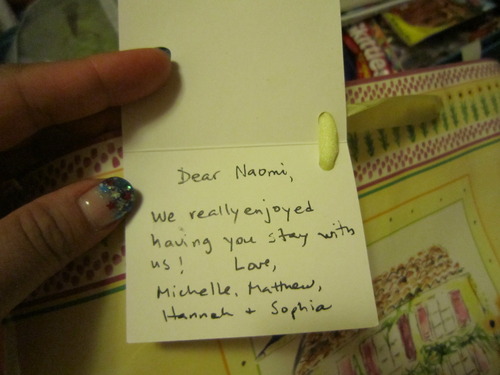 Dear Naomi,
We really enjoyed
having you stay with
us! Love,
Michelle, Matthew,
Hannah + Sophia
Skittles